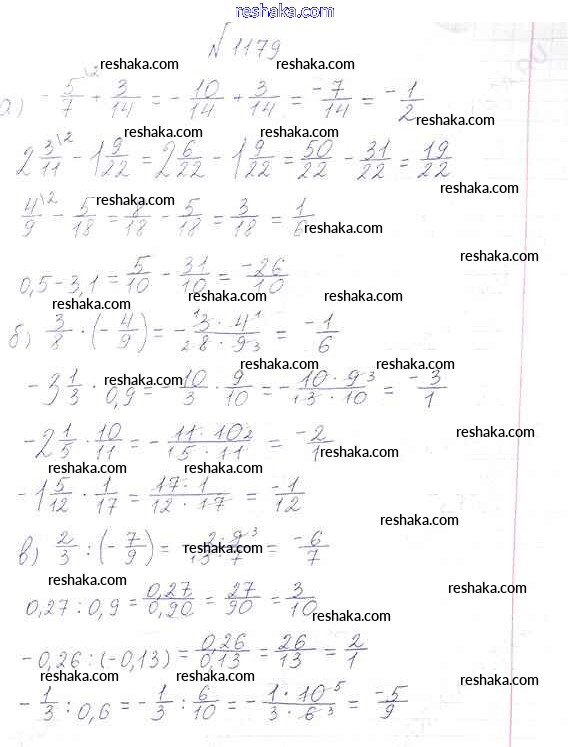 reshaka.com
N 1179
reshaka.com reshaka.com
а) - 5/7 \2 + 3/14 = - 10/14 + 3/14 = -7/14 = -1/2
reshaka.com reshaka.com
reshaka.com reshaka.com
2 3/11 \2 - 1 9/22 = 2 6/22 - 1 9/22 = 50/22 - 31/22 = 19/22
reshaka.com reshaka.com
4/9 \2 - 5/18 = 8/18 - 5/18 = 3/18 = 1/6
reshaka.com
reshaka.com
0,5 - 3,1 = 5/10 - 31/10 = -26/10
reshaka.com reshaka.com
reshaka.com
б) 3/8 · (- 4/9) = - 3 · 4 / 8 · 9 = -1/6
reshaka.com reshaka.com
reshaka.com reshaka.com
-3 1/3 · 0,9 = - 10/3 · 9/10 = - 10 · 9 / 3 · 10 = -3/1
reshaka.com
-2 1/5 · 10/11 = - 11 · 10 / 5 · 11 = -2/1
reshaka.com reshaka.com
reshaka.com
-1 5/12 · 1/17 = 17 · 1 / 12 · 17 = -1/12
reshaka.com
в) 2/3 : (- 7/9) = - 2 · 9 / 3 · 7 = -6/7
reshaka.com
reshaka.com reshaka.com
0,27 : 0,9 = 0,27/0,90 = 27/90 = 3/10
reshaka.com
reshaka.com
-0,26 : (-0,13) = 0,26/0,13 = 26/13 = 2/1
reshaka.com reshaka.com reshaka.com
- 1/3 : 0,6 = - 1/3 : 6/10 = - 1 · 10 / 3 · 6 = -5/9
reshaka.com reshaka.com